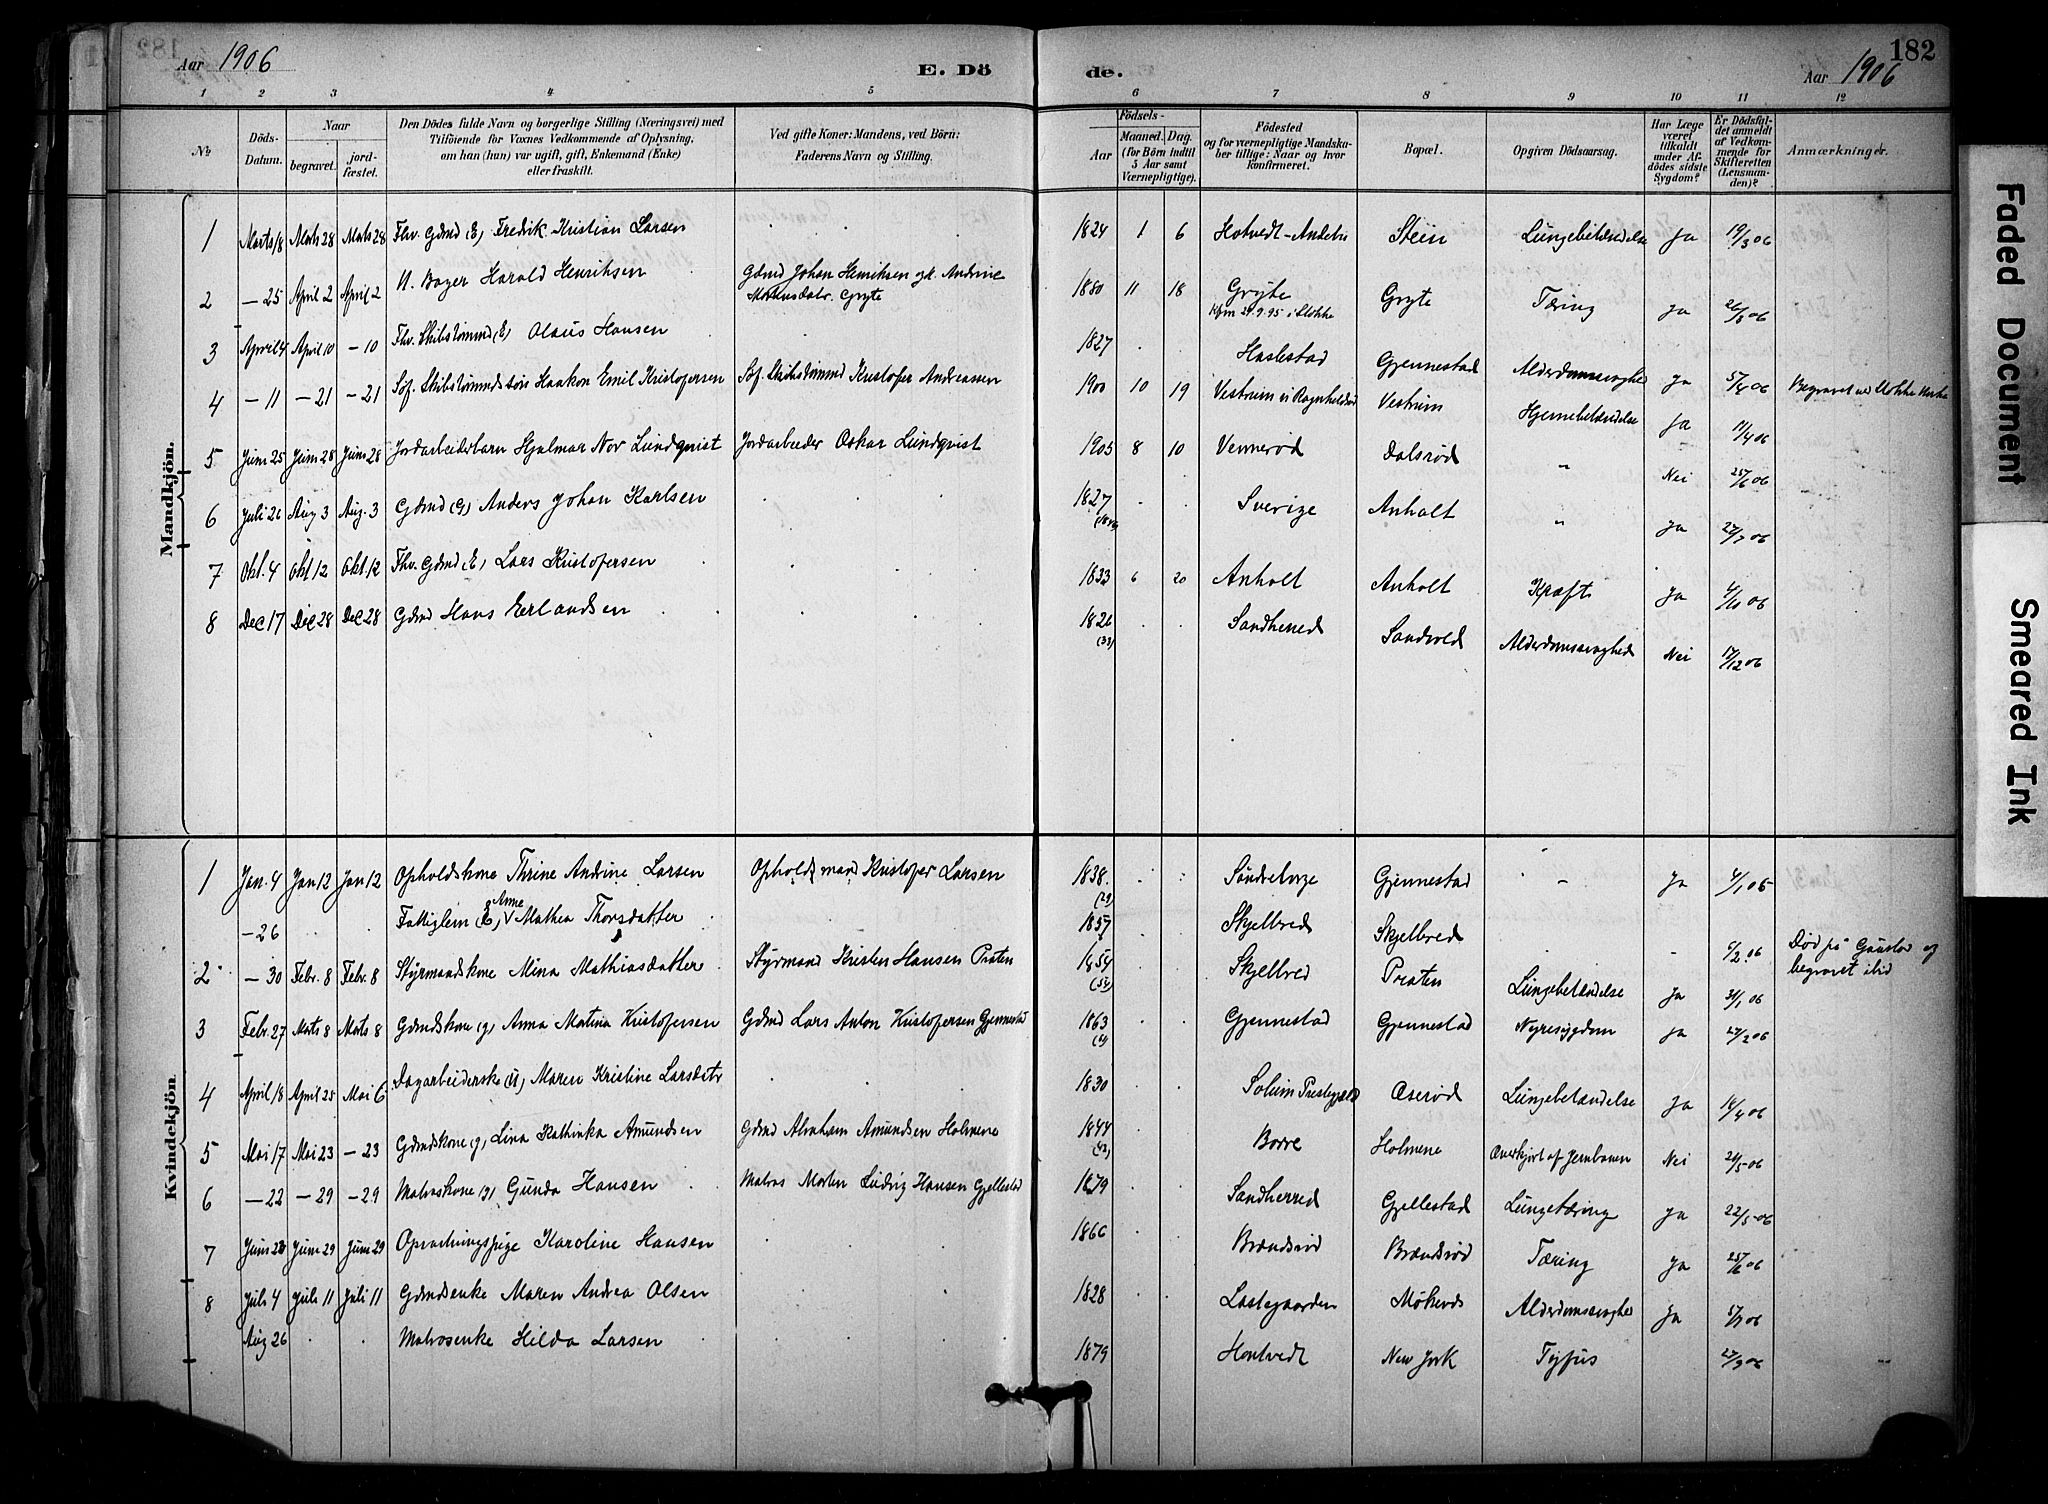 182
Aar 1906
E. Dö
de.
Aar 1906
1 2 3 4 5 6 7 8 9 10 11 12
No.
Döds-
Datum.
Naar
begravet.
jord-
fæstet.
Den Dödes fulde Navn og borgerlige Stilling (Næringsvei) med
Tilföiende for Voxnes Vedkommende af Oplysning,
om han (hun) var ugift, gift, Enkemand (Enke)
eller fraskilt.
Ved gifte Koner: Mandens, ved Börn:
Faderens Navn og Stilling.
Födsels-
Aar
Maaned. Dag.
(for Börn indtil
5 Aar samt
Værnepligtige).
Födested
og for værnepligtige Mandska-
ber tillige: Naar og hvor
konfirmeret.
Bopæl.
Opgiven Dödsaarsag.
Har Læge
været
tilkaldt
under Af-
dödes sidste
Sygdom?
Er Dödsfal-
det anmeldt
af Vedkom-
mende for
Skifteretten
(Lensman-
den)?
Anmærkninger.
Mandkjön.
1 Marts 18 Marts 28 Marts 28 Fhv. Gdmd (E) Fredik Kristian Larsen 1824 1 6 Hotvedt - Andebu Stein Lungebetændelse Ja 19/3 06
2 - 25 April 2 April 2 U. Bager Harald Henriksen Gdmd Johan Henriksen og k. Andrine
Gryte 1880 11 18 Gryte Gryte Tæring Ja 26/3 06
3 April 4 April 10 - 10 Fhv. Skibstømmd (E) Olaus Hansen 1827 Haslestad Gjennestad Ja 5/4 06
4 - 11 - 21 - 21 Søf. Skibstømmdsøn Haakon Emil Kristofersen Søf. Skibstømmd Kristofer Andreassen 1900 10 19 Vestrum Vestrum Hjernebetændelse Ja 11/4 06 Begravet ved Slokke Kirke
5 Juni 25 Juni 28 Juni 28 Jordarbeiderbarn Hjalmar Nor Lundqvist Jordarbeider Oskar Lundqvist 1905 8 10 Vennerød Dalsrød " Nei 25/6 06
6 Juli 26 Aug 3 Aug. 3 Gdmd (G) Anders Johan Karlsen 1827 Sverige Anholt " Ja 27/7 06
7 Okt. 4 Okt 12 Okt. 12 Fhv. Gdmd (E) Lars Kristofersen 1833 6 20 Anholt Anholt Kræft Ja 4/10 06
8 Dec 17 Dec 28 Dec 28 Gdmd Hans Erlandsen 1826
(33) Sandherred Sandvold Alderdomssvaghed Nei 17/12 06
Kvindekjön
1 Jan. 4 Jan 12 Jan 12 Opholdskone Thrine Andrine Larsen Opholdsmand Kristofer Larsen 1838. Gjennestad - Ja
- 26 Fattiglem (E) Anne Mathea Thorsdatter 1857 Skjelbred Skjelbred - 6/2 06 Død på Gaustad og
begravet
2 - 30 Febr. 8 Febr. 8 Styrmandskone Mina Mathiasdatter Styrmand Kristen Hansen Præten 1854 Skjelbred Præten Lungebetændelse Ja 31/1 06
3 Febr. 27 Marts 8 Marts 8 Gdmdskone (g) Anna Martina Kristofersen Gdmd Lars Anton Kristofersen Gjennestad 1863 Gjennestad Gjennestad Nyresygdom Ja 27/2 06
4 April 18 April 25 Mai 6 Dagarbeiderske (U) Maren Kristine Larsdatr 1830 Solum Præstegjæld Aserød Lungebetændelse Ja 18/4 06
5 Mai 17 Mai 23 - 23 Gdmdskone (g) Lina Kathinka Amundsen Gdmd Abraham Amundsen Holmene 1844
(42) Borre Holmene Overkjørt af Jernbanen Nei
6 - 22 - 29 - 29 Matroskone (g) Gunda Hansen Matros Morten Ludvig Hansen Gjellestad 1879 Sandherred Gjellestad Lungetæring Ja 22/5 06
7 Juni 23 Juni 29 Juni 29 Opvartningspige Karoline Hansen 1866 Brændsrød Brændsrød Tæring Ja 25/6 06
8 Juli 4 Juli 11 Juli 11 Gdmdsenke Maren Andrea Olsen 1828 Møkenås Alderdomssvaghed Ja 5/7 06
Aug 26 Matrosenke Hilda Larsen 1879 Hontvedt New York Tyfus 27/9 06
Faded Document
Smeared Ink